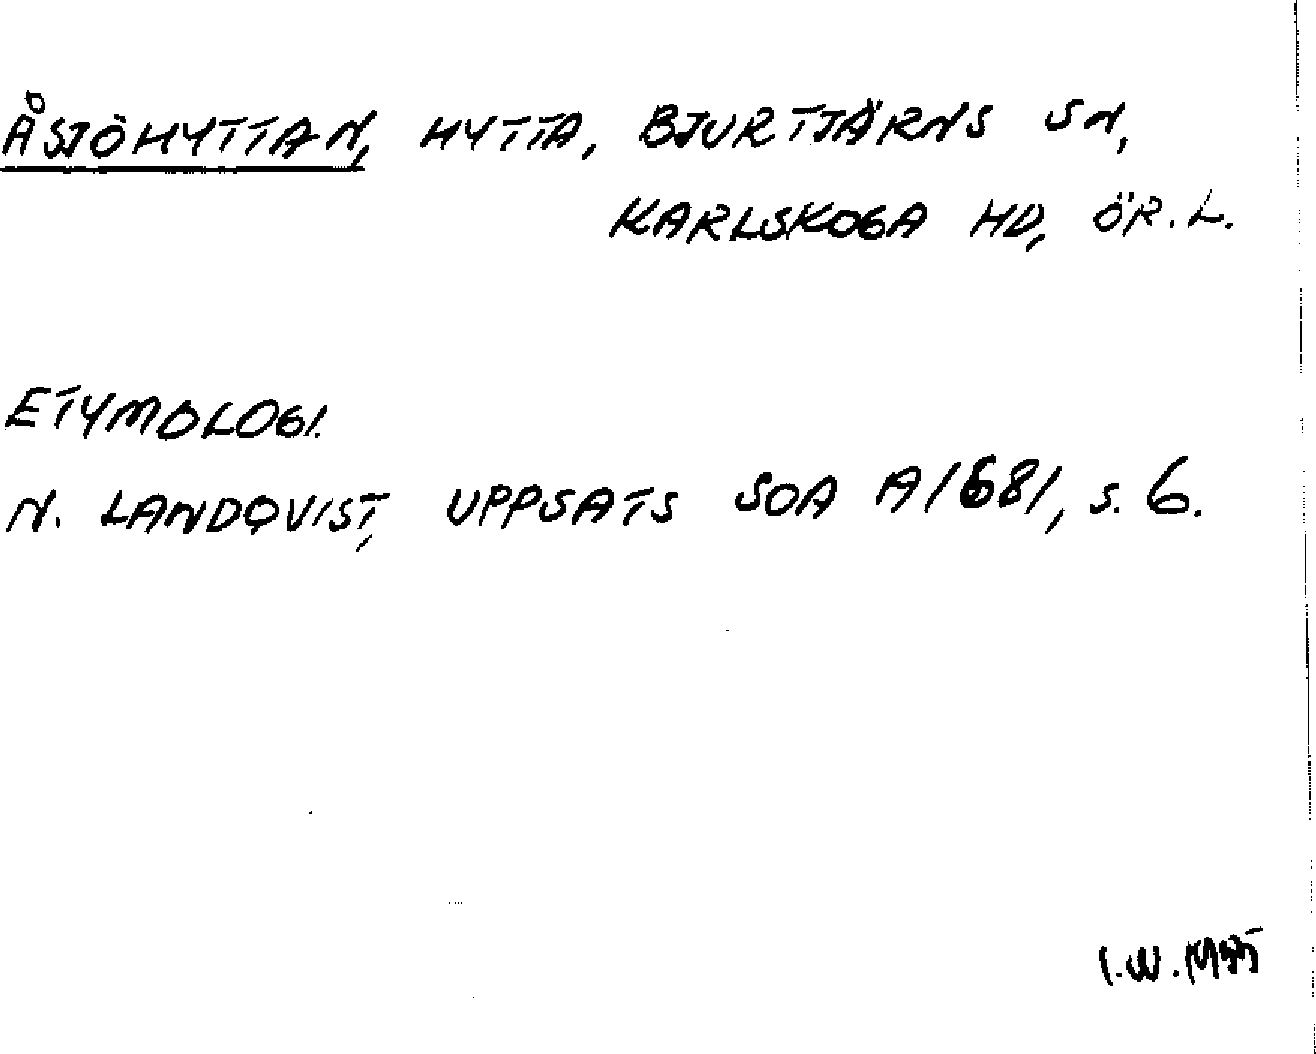 ÅSJÖHYTTAN, HYTTA, BJURTJÄRNS SN,
KARLSKOGA HD, ÖR. L.
ETYMOLOGI.
N. LANDQVIST, UPPSATS SOA A/681, S. 6.
I.W.